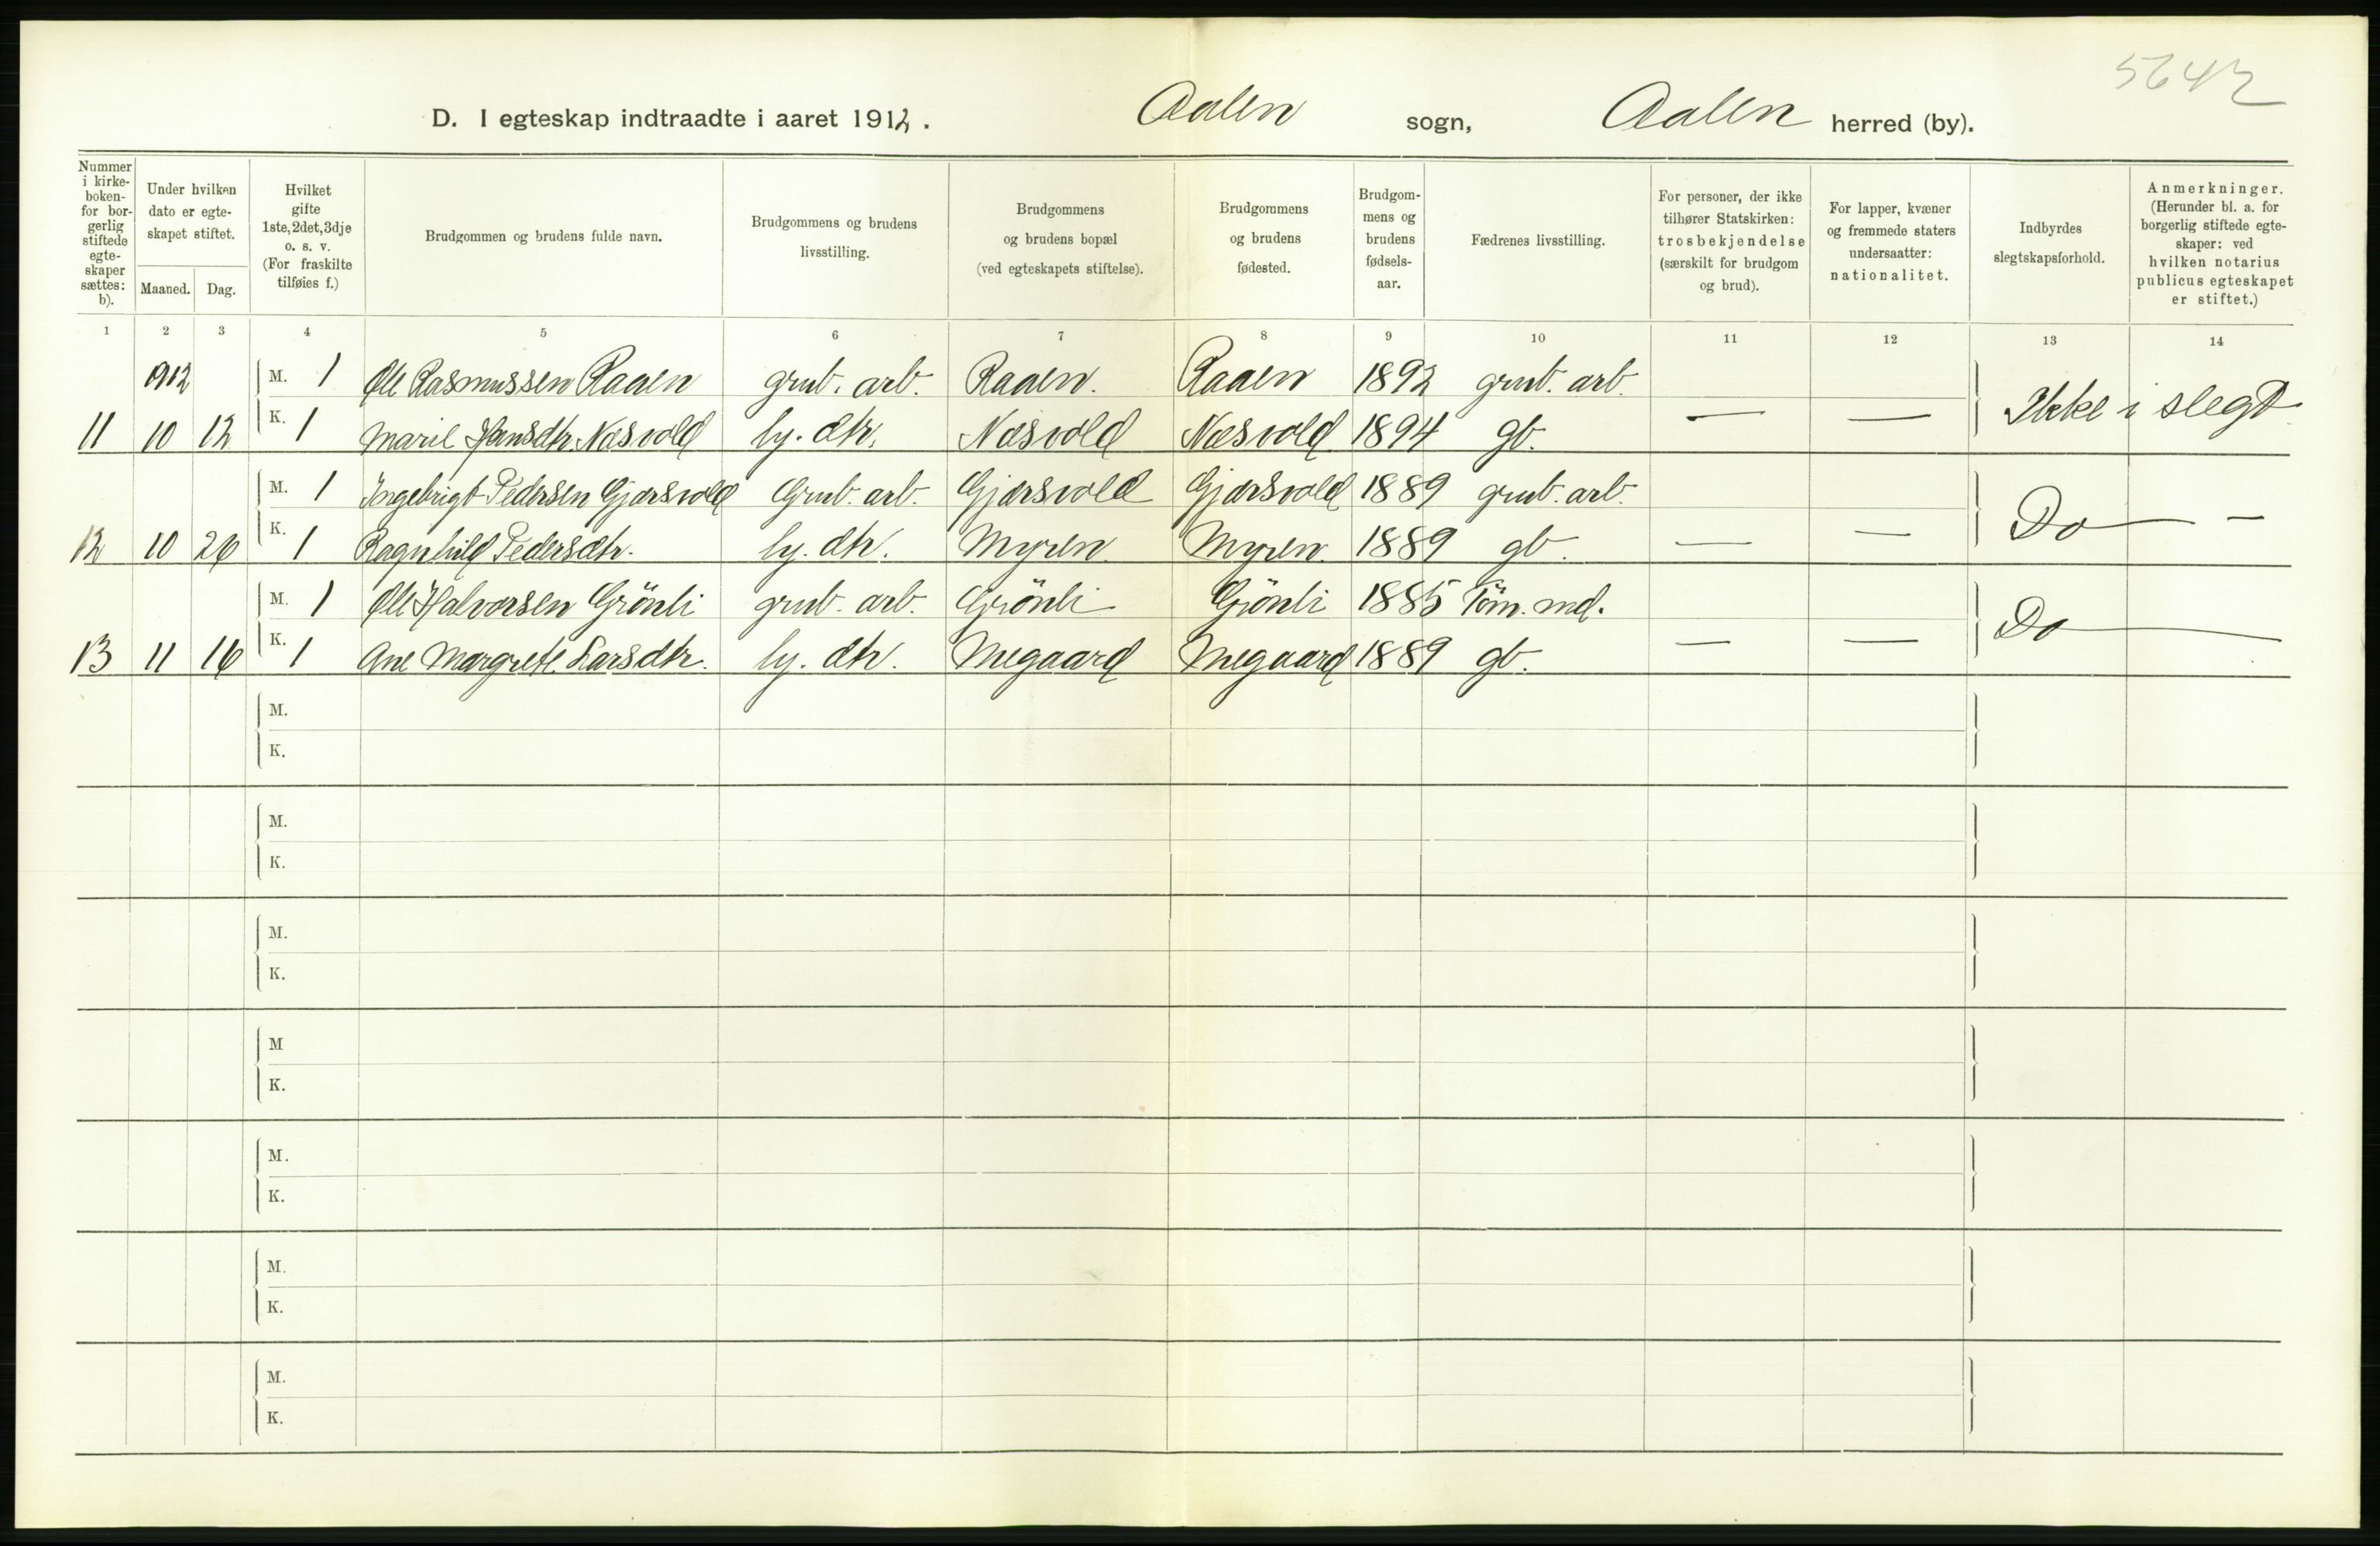 5642
D. I egteskap indtraadte i aaret 1912. Aalen sogn, Aalen herred (by).
Nummer i kirke-boken- for bor-gerlig stiftede egte-skaper sættes: b).
Under hvilken dato er egte-skapet stiftet.
Maaned. Dag.
Hvilket gifte 1ste, 2det, 3dje o. s. v. (For fraskilte tilføies f.)
Brudgommen og brudens fulde navn.
Brudgommens og brudens livsstilling.
Brudgommens og brudens bopæl (ved egteskapets stiftelse).
Brudgommens og brudens fødested.
Brudgom-mens og brudens fødsels-aar.
Fædrenes livsstilling.
For personer, der ikke tilhører Statskirken: trosbekjendelse (særskilt for brudgom og brud).
For lapper, kvæner og fremmede staters undersaatter: nationalitet.
Indbyrdes slegtskapsforhold.
Anmerkninger. (Herunder bl. a. for borgerlig stiftede egte-skaper: ved hvilken notarius publicus egteskapet er stiftet.)
1 2 3 4 5 6 7 8 9 10 11 12 13 14
1912 M. 1 Ole Rasmussen Raaen grub. arb. Raaen. Raaen 1892 grub. arb.
11 10 12 K. 1 Marit Hansdtr. Næsvold ly. dtr. Næsvold Næsvold 1894 gb. — — Ikke i slegt
M. 1 Ingebrigt Pedersen Gjærsvold Grub. arb. Gjærsvold Gjærsvold 1889 grub. arb.
12 10 26 K. 1 Ragnhild Pedersdtr. ly. dtr. Myren Myren 1889 gb. — — Do — —
M. 1 Ole Halvorsen Grönli grub. arb. Grönli Grönli 1885 Töm. md.
13 11 16 K. 1 Ane Margrete Larsdtr. ly. dtr. Megaard Megaard 1889 gb. — — Do —
M.
K.
M.
K.
M.
K.
M
K.
M.
K.
M.
K.
M.
K.